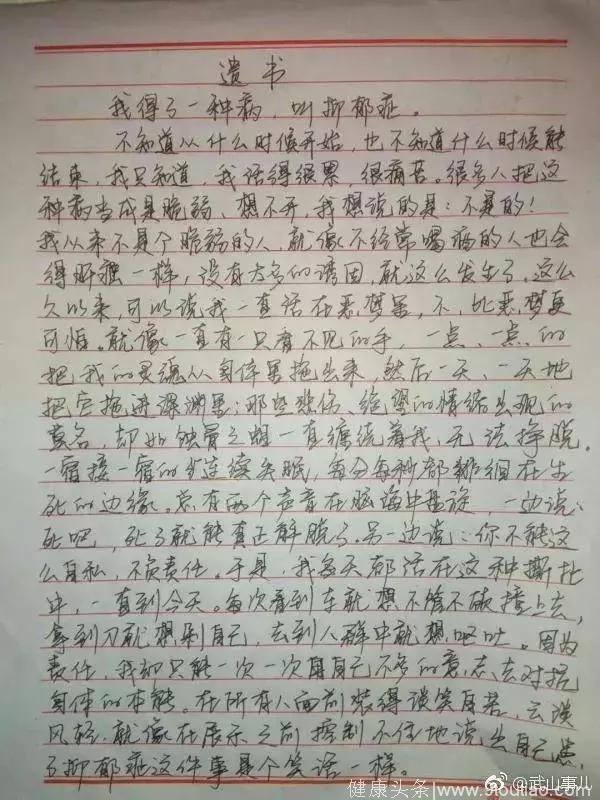 遗书
我得了一种病，叫抑郁症。
不知道从什么时候开始，也不知道什么时候能
结束，我只知道，我活得很累，很痛苦。很多人把这
种病当成是脆弱、想不开，我想说的是：不是的！
我从来不是个脆弱的人，就像不经常喝酒的人也会
得肝癌一样，没有太多的诱因，就这么发生了，这么
久以来，可以说我一直活在恶梦里，不，比恶梦更
可怕。就像一直有一只看不见的手，一点、一点的
把我的灵魂从身体里拖出来，然后一天、一天地
把它拖进深渊里；那些悲伤、绝望的情绪出现的
莫名，却如蚀骨之蛆一直缠绕着我，无法挣脱。
一宿接一宿的连续失眠，每分每秒都徘徊在生
死的边缘。总有两个声音在脑海中盘旋，一边说：
死吧，死了就能真正解脱了。另一边说：你不能这
么自私，不负责任。于是，我每天都活在这种撕扯
中，一直到今天。每次看到车就想不管不顾撞上去，
拿到刀就想割自己，去到人群中就想呕吐。因为
责任，我却只能一次一次用自己不多的意志去对抗
身体的本能。在所有人面前装得谈笑自若、云淡
风轻，就像在展示之前控制不住地说出自己患
了抑郁症这件事是个笑话一样。
健康头条/www.9louliao.com
@武山事儿